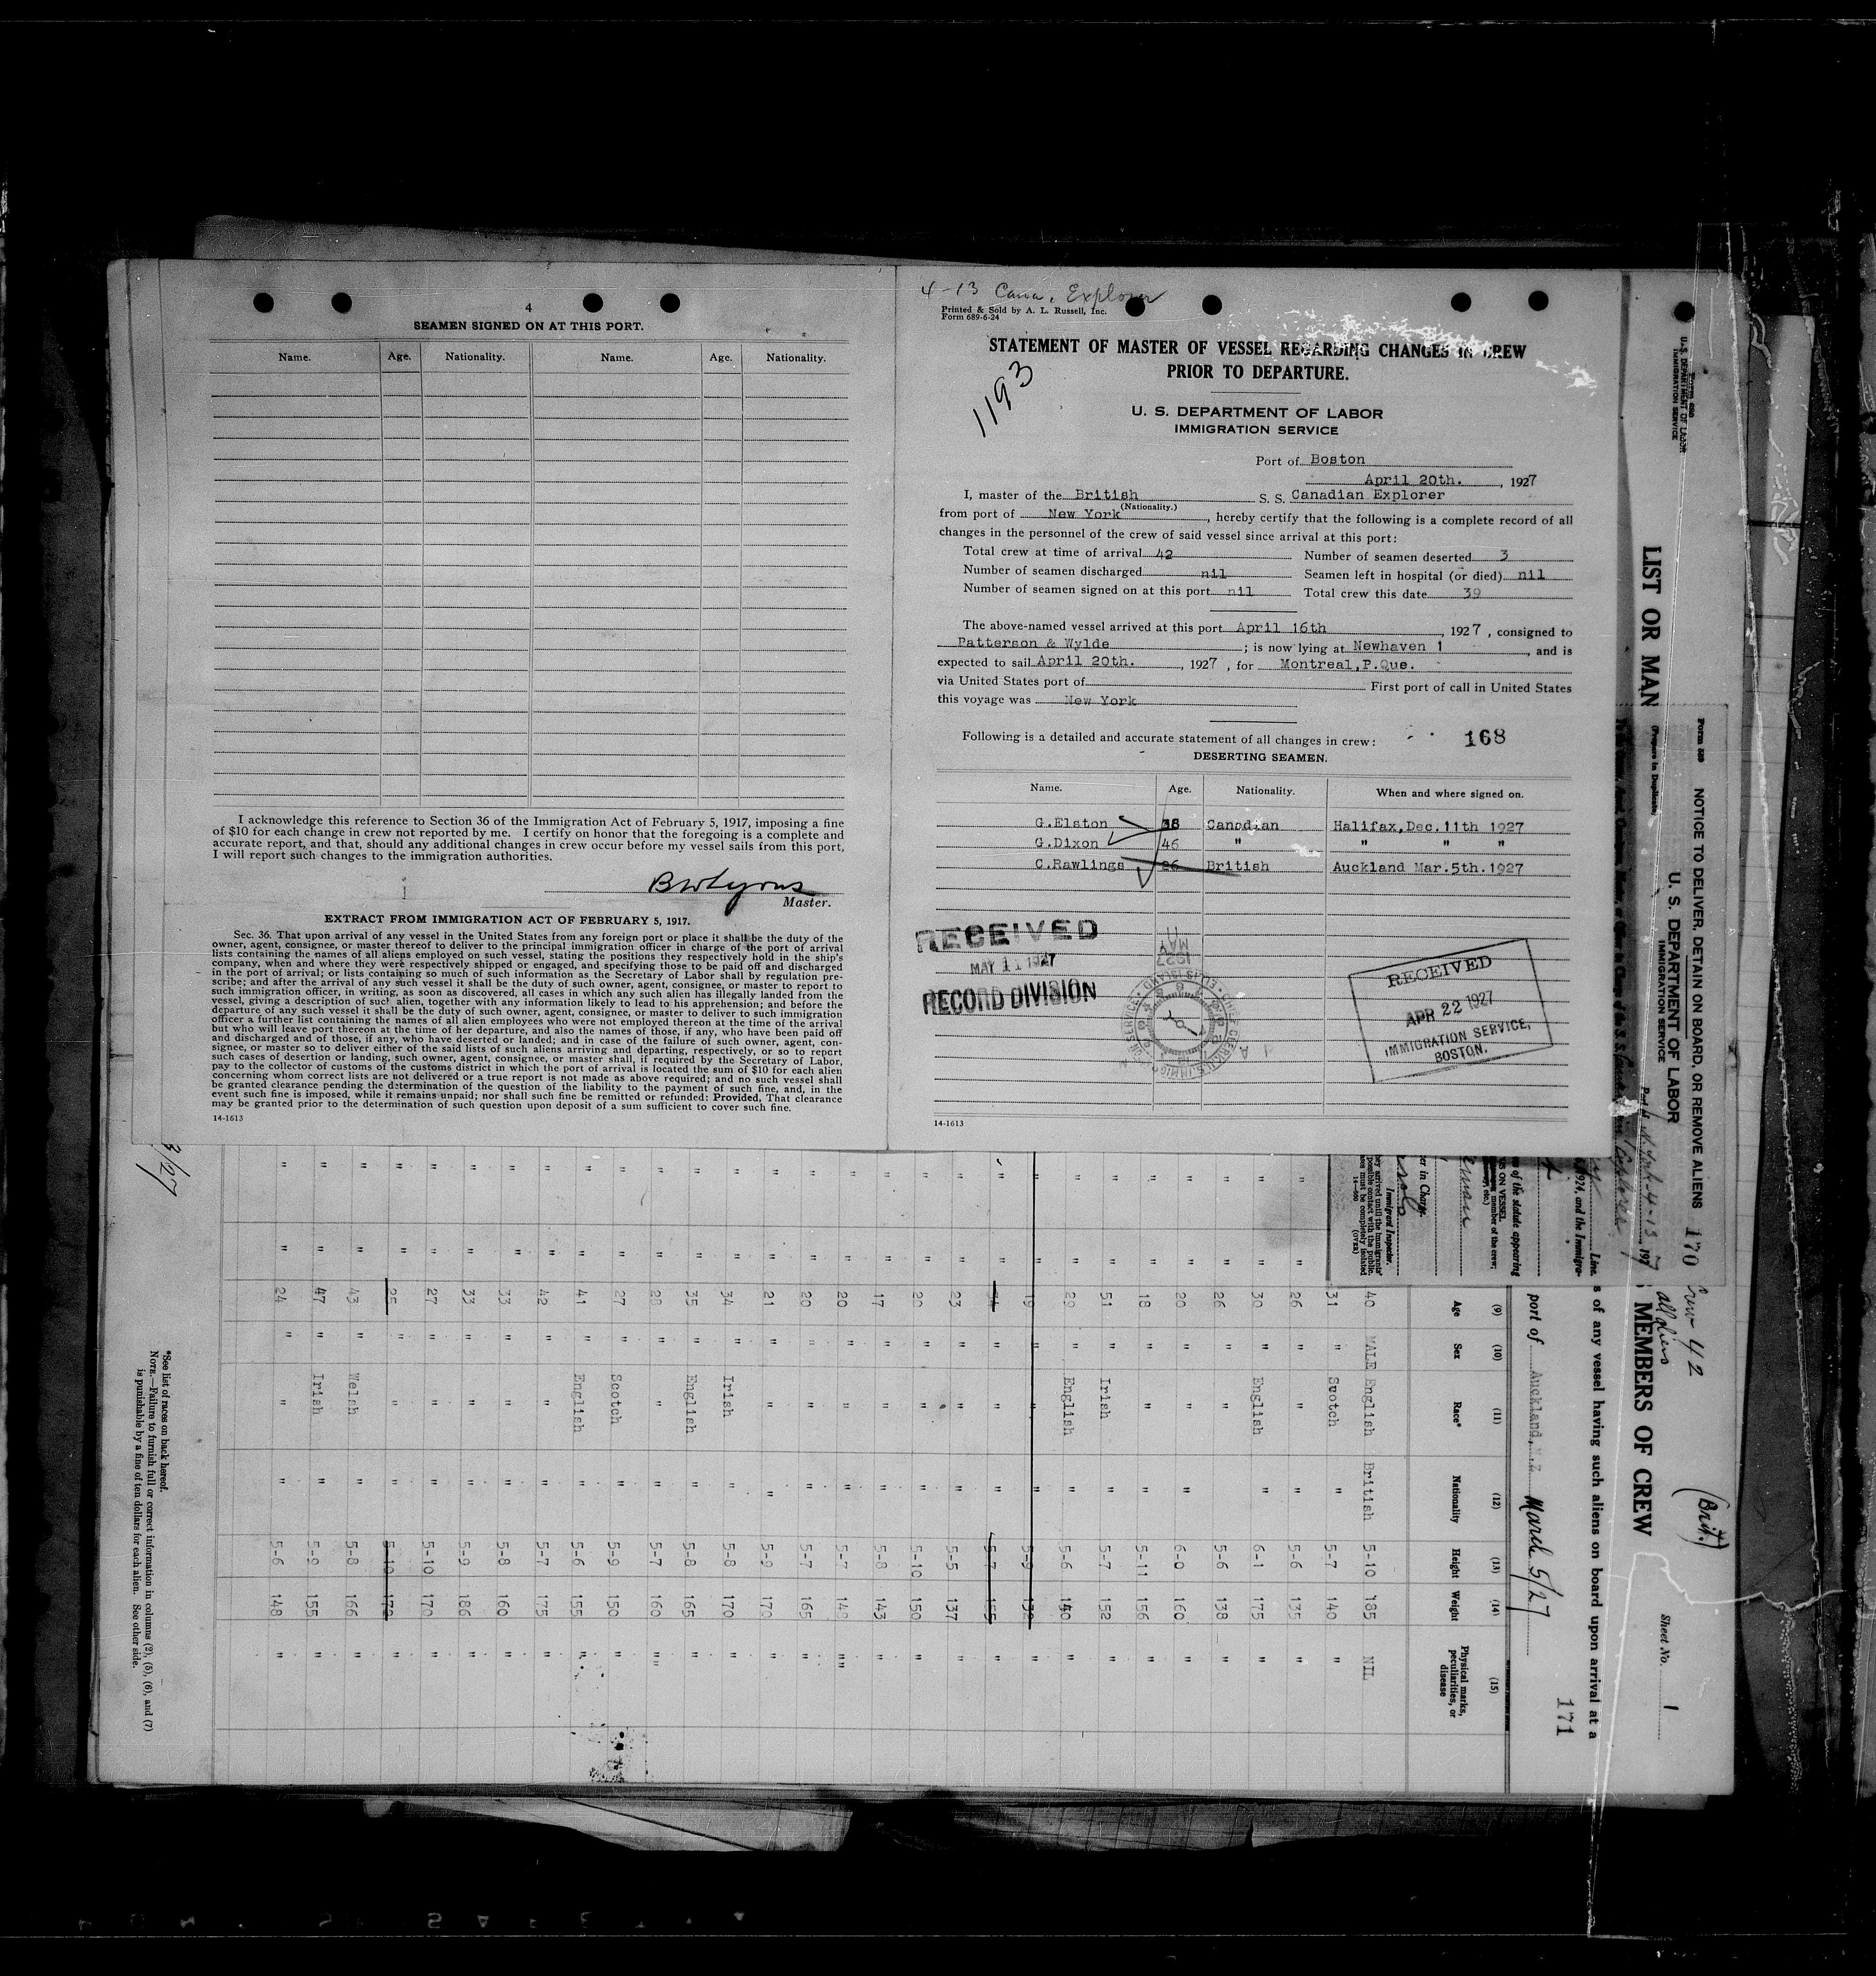 4
SEAMEN SIGNED ON AT THIS PORT.
Name. Age. Nationality. Name. Age. Nationality.
I acknowledge this reference to Section 36 of the Immigration Act of February 5, 1917, imposing a fine
of $10 for each change in crew not reported by me. I certify on honor that the foregoing is a complete and
accurate report, and that, should any additional changes in crew occur before my vessel sails from this port,
I will report such changes to the immigration authorities.
Master.
EXTRACT FROM IMMIGRATION ACT OF FEBRUARY 5, 1917.
Sec. 36. That upon arrival of any vessel in the United States from any foreign port or place it shall be the duty of the
owner, agent, consignee, or master thereof to deliver to the principal immigration officer in charge of the port of arrival
lists containing the names of all aliens employed on such vessel, stating the positions they respectively hold in the ship's
company, when and where they were respectively shipped or engaged, and specifying those to be paid off and discharged
in the port of arrival; or lists containing so much of such information as the Secretary of Labor shall by regulation pre-
scribe; and after the arrival of any such vessel it shall be the duty of such owner, agent, consignee, or master to report to
such immigration officer, in writing, as soon as discovered, all cases in which any such alien has illegally landed from the
vessel, giving a description of such alien, together with any information likely to lead to his apprehension; and before the
departure of any such vessel it shall be the duty of such owner, agent, consignee, or master to deliver to such immigration
officer a further list containing the names of all alien employees who were not employed thereon at the time of the arrival
but who will leave port thereon at the time of her departure, and also the names of those, if any, who have been paid off
and discharged and of those, if any, who have deserted or landed; and in case of the failure of such owner, agent, con-
signee, or master so to deliver either of the said lists of such aliens arriving and departing, respectively, or so to report
such cases of desertion or landing, such owner, agent, consignee, or master shall, if required by the Secretary of Labor,
pay to the collector of customs of the customs district in which the port of arrival is located the sum of $10 for each alien
concerning whom correct lists are not delivered or a true report is not made as above required; and no such vessel shall
be granted clearance pending the determination of the question of the liability to the payment of such fine, and, in the
event such fine is imposed, while it remains unpaid; nor shall such fine be remitted or refunded: Provided, That clearance
may be granted prior to the determination of such question upon deposit of a sum sufficient to cover such fine.
14-1613
4-13 Cana. Explorer
Printed & Sold by A. L. Russell, Inc.
Form 689-6-24
STATEMENT OF MASTER OF VESSEL REGARDING CHANGES IN CREW
PRIOR TO DEPARTURE.
1193
U. S. DEPARTMENT OF LABOR
IMMIGRATION SERVICE
Port of Boston
April 20th. , 1927
I, master of the British S. S. Canadian Explorer
(Nationality.)
from port of New York , hereby certify that the following is a complete record of all
changes in the personnel of the crew of said vessel since arrival at this port:
Total crew at time of arrival 42 Number of seamen deserted 3
Number of seamen discharged nil Seamen left in hospital (or died) nil
Number of seamen signed on at this port nil Total crew this date 39
The above-named vessel arrived at this port April 16th , 1927 , consigned to
Patterson & Wylde ; is now lying at Newhaven 1 , and is
expected to sail April 20th. , 1927 , for Montreal,P.Que.
via United States port of First port of call in United States
this voyage was New York
Following is a detailed and accurate statement of all changes in crew: 168
DESERTING SEAMEN.
Name. Age. Nationality. When and where signed on.
G.Elston 38 Canadian Halifax,Dec.11th 1927
G.Dixon 46 " " " "
C.Rawlings 26 British Auckland Mar.5th.1927
RECEIVED
MAY 11 1927
RECORD DIVISION
RECEIVED
APR 22 1927
IMMIGRATION SERVICE,
BOSTON.
14-1613
U. S. DEPARTMENT OF LABOR
IMMIGRATION SERVICE
LIST OR MAN
MEMBERS OF CREW
(Brit.)
Sheet No. 1
NOTICE TO DELIVER, DETAIN ON BOARD, OR REMOVE ALIENS 170
U. S. DEPARTMENT OF LABOR
IMMIGRATION SERVICE
42
all aliens
s of any vessel having such aliens on board upon arrival at a
171
port of Auckland,N.Z March 5/27
(9) (10) (11) (12) (13) (14) (15)
Age Sex Race* Nationality Height Weight Physical marks, peculiarities, or disease
40 MALE English British 5-10 185 NIL
31 " Scotch " 5-7 140 "
26 " " " 5-6 135 "
30 " English " 6-1 175 "
26 " " 5-6 138 "
20 " " " 6-0 160 "
18 " " " 5-11 156 "
51 " Irish " 5-7 152 "
29 " English " 5-6 140 "
19 " " " 5-9 132 "
" " " 5-7 155 "
23 " " " 5-5 137 "
20 " " " 5-10 150 "
17 " " " 5-8 143 "
20 " " " 5-7 "
20 " " " 5-7 165 "
21 " " " 5-9 170 "
34 " Irish " 5-8 170 "
35 " English " 5-8 165 "
28 " " " 5-7 160 "
27 " Scotch " 5-9 150 "
41 " English " 5-6 155 "
42 " " " 5-7 175 "
33 " " " 5-8 160 "
33 " " " 5-9 186 "
27 " " " 5-10 170 "
25 " " " 5-10 172 "
43 " Welsh " 5-8 166 "
47 " Irish " 5-9 155 "
24 " " " 5-6 148 "
*See list of races on back hereof.
NOTE.—Failure to furnish full or correct information in columns (2), (5), (6), and (7)
is punishable by a fine of ten dollars for each alien. See other side.